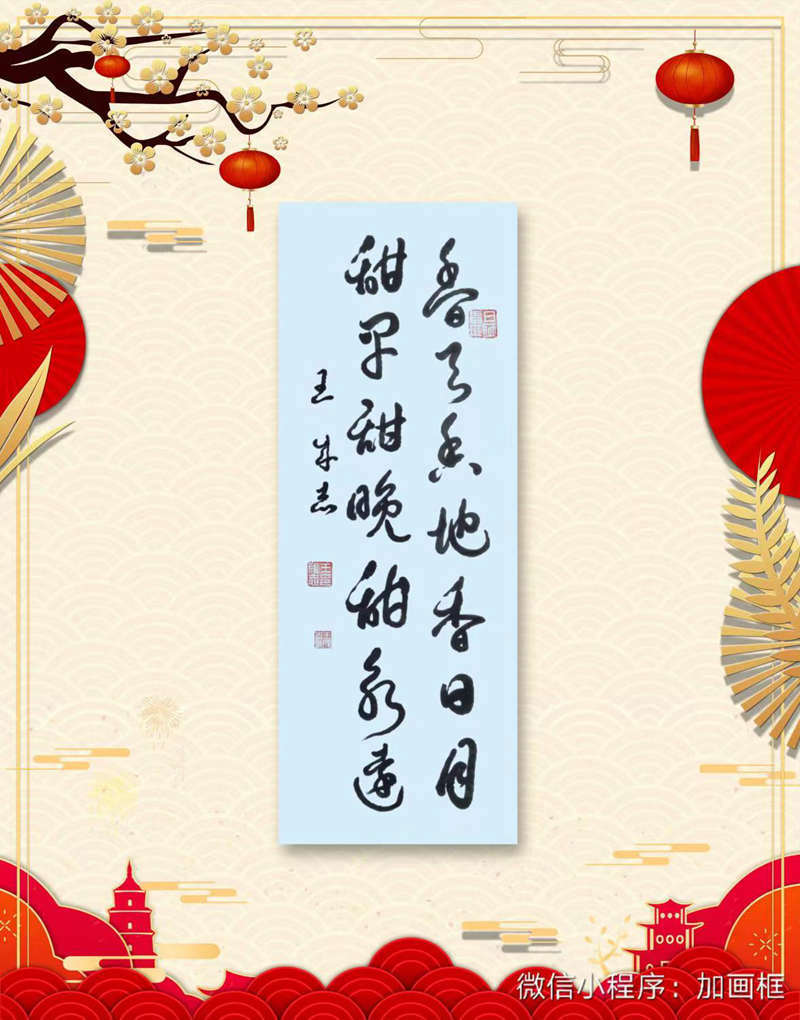 香天香地香日月
甜早甜晚甜永远
王成志
微信小程序：加画框